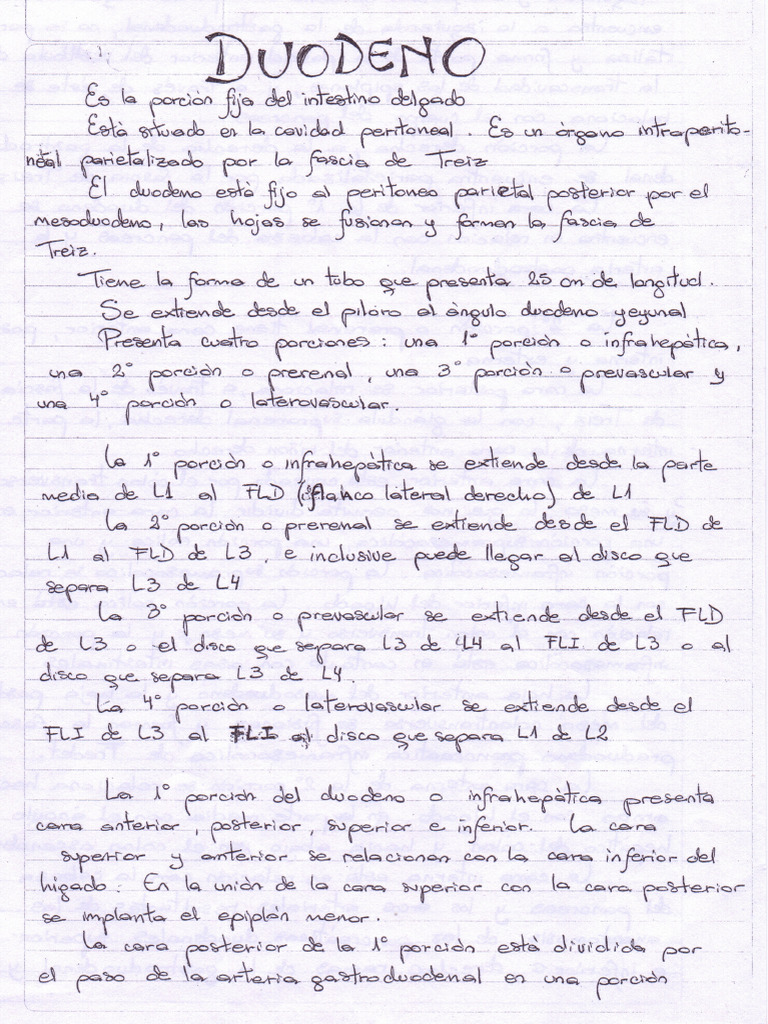 DUODENO
Es la porción fija del intestino delgado
Está situado en la cavidad peritoneal. Es un órgano intraperito-
neal parietalizado por la fascia de Treiz
El duodeno está fijo al peritoneo parietal posterior por el
mesoduodeno, las hojas se fusionan y forman la fascia de
Treiz.
Tiene la forma de un tubo que presenta 25 cm de longitud.
Se extiende desde el píloro al ángulo duodeno yeyunal
Presenta cuatro porciones: una 1º porción o infrahepática,
una 2º porción o prerenal, una 3º porción o prevascular y
una 4º porción o laterovascular.
La 1º porción o infrahepática se extiende desde la parte
media de L1 al FLD (flanco lateral derecho) de L1
La 2º porción o prerenal se extiende desde el FLD de
L1 al FLD de L3, e inclusive puede llegar al disco que
separa L3 de L4
La 3º porción o prevascular se extiende desde el FLD
de L3 o el disco que separa L3 de L4 al FLI de L3 o al
disco que separa L3 de L4.
La 4º porción o laterovascular se extiende desde el
FLI de L3 al FLI al disco que separa L1 de L2
La 1º porción del duodeno o infrahepática presenta
cara anterior, posterior, superior e inferior. La cara
superior y anterior se relacionan con la cara inferior del
hígado. En la unión de la cara superior con la cara posterior
se implanta el epiplón menor.
La cara posterior de la 1º porción está dividida por
el paso de la arteria gastroduodenal en una porción